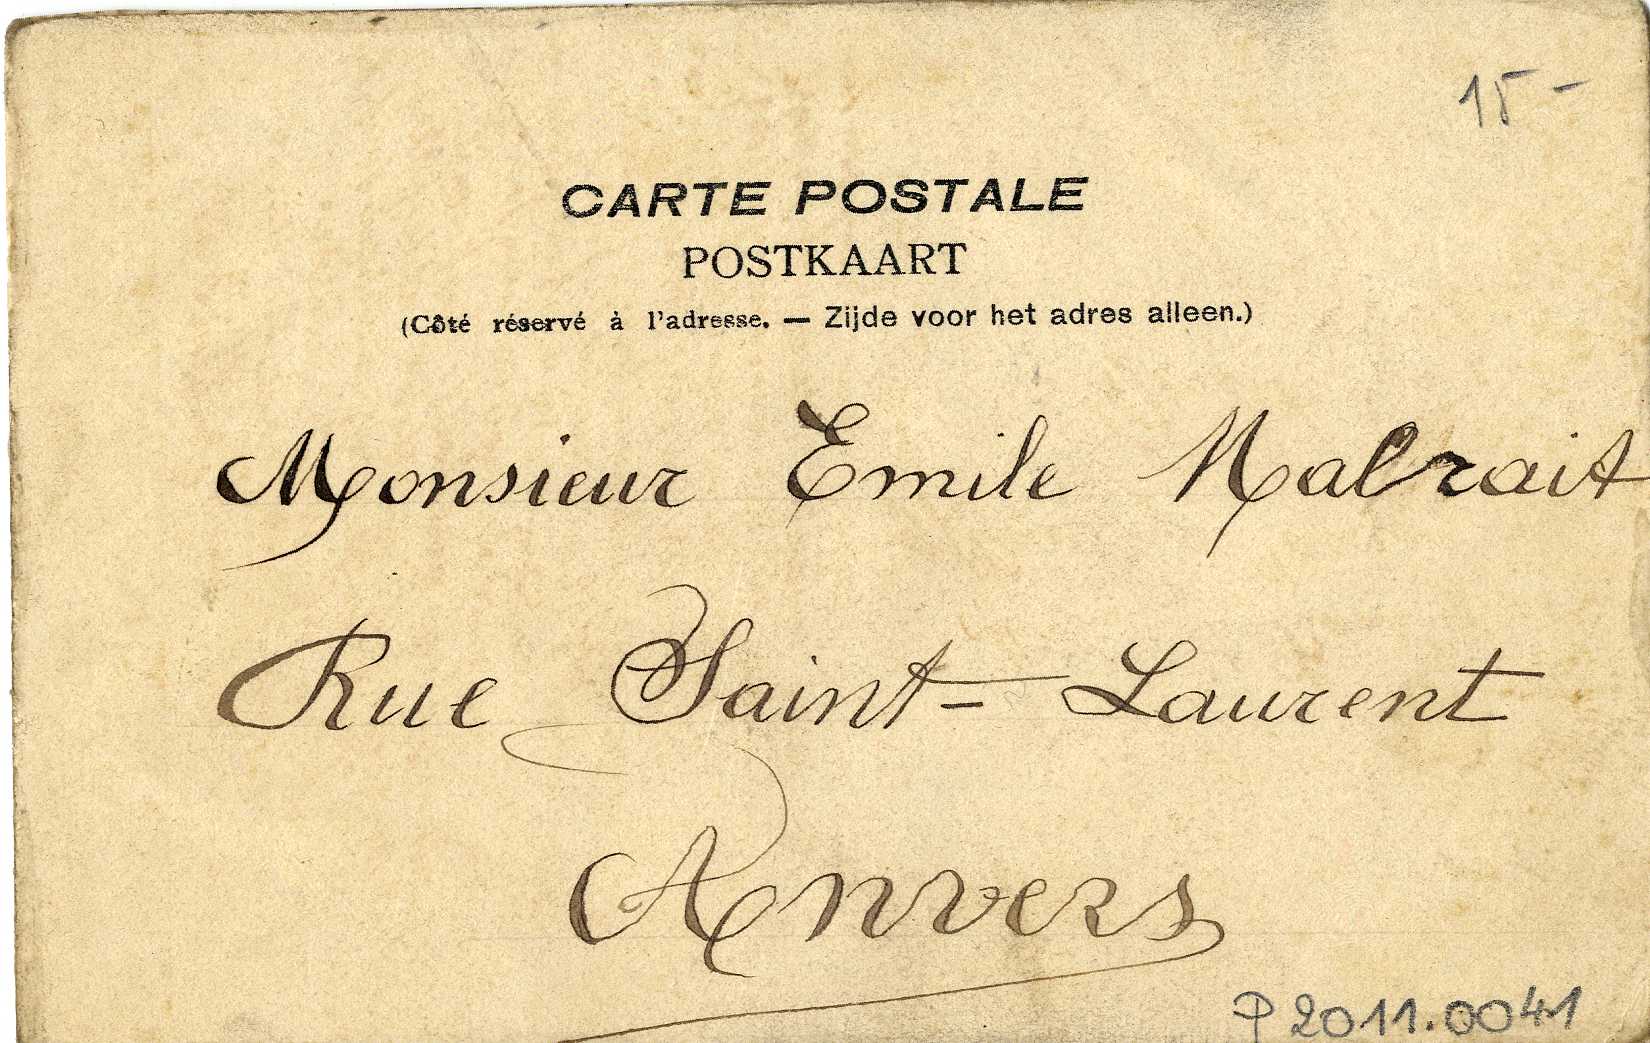 15 -
CARTE POSTALE
POSTKAART
(Côté réservé à l'adresse. — Zijde voor het adres alleen.)
Monsieur Emile Malrait
Rue Saint-Laurent
Anvers
P 2011.0041